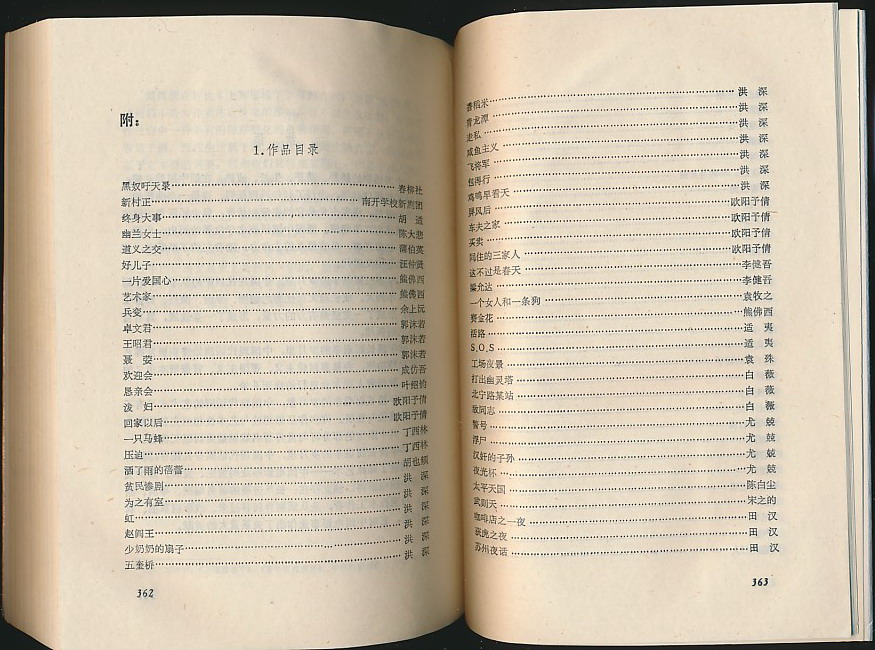 附：
1.作品目录
黑奴吁天录……春柳社
新村正……南开学校新剧团
终身大事……胡　适
幽兰女士……陈大悲
道义之交……蒲伯英
好儿子……汪仲贤
一片爱国心……熊佛西
艺术家……熊佛西
兵变……余上沅
卓文君……郭沫若
王昭君……郭沫若
聂　嫈……郭沫若
欢迎会……成仿吾
恳亲会……叶绍钧
泼　妇……欧阳予倩
回家以后……欧阳予倩
一只马蜂……丁西林
压迫……丁西林
洒了雨的蓓蕾……胡也频
贫民惨剧……洪　深
为之有室……洪　深
虹……洪　深
赵阎王……洪　深
少奶奶的扇子……洪　深
五奎桥……洪　深
362
香稻米……洪　深
青龙潭……洪　深
走私……洪　深
咸鱼主义……洪　深
飞将军……洪　深
包得行……洪　深
鸡鸣早看天……洪　深
屏风后……欧阳予倩
车夫之家……欧阳予倩
买卖……欧阳予倩
同住的三家人……欧阳予倩
这不过是春天……李健吾
梁允达……李健吾
一个女人和一条狗……袁牧之
赛金花……熊佛西
活路……适　夷
S.O.S……适　夷
工场夜景……袁　殊
打出幽灵塔……白　薇
北宁路某站……白　薇
敌同志……白　薇
警号……尤　兢
浮尸……尤　兢
汉奸的子孙……尤　兢
夜光杯……尤　兢
太平天国……陈白尘
武则天……宋之的
咖啡店之一夜……田　汉
获虎之夜……田　汉
苏州夜话……田　汉
363